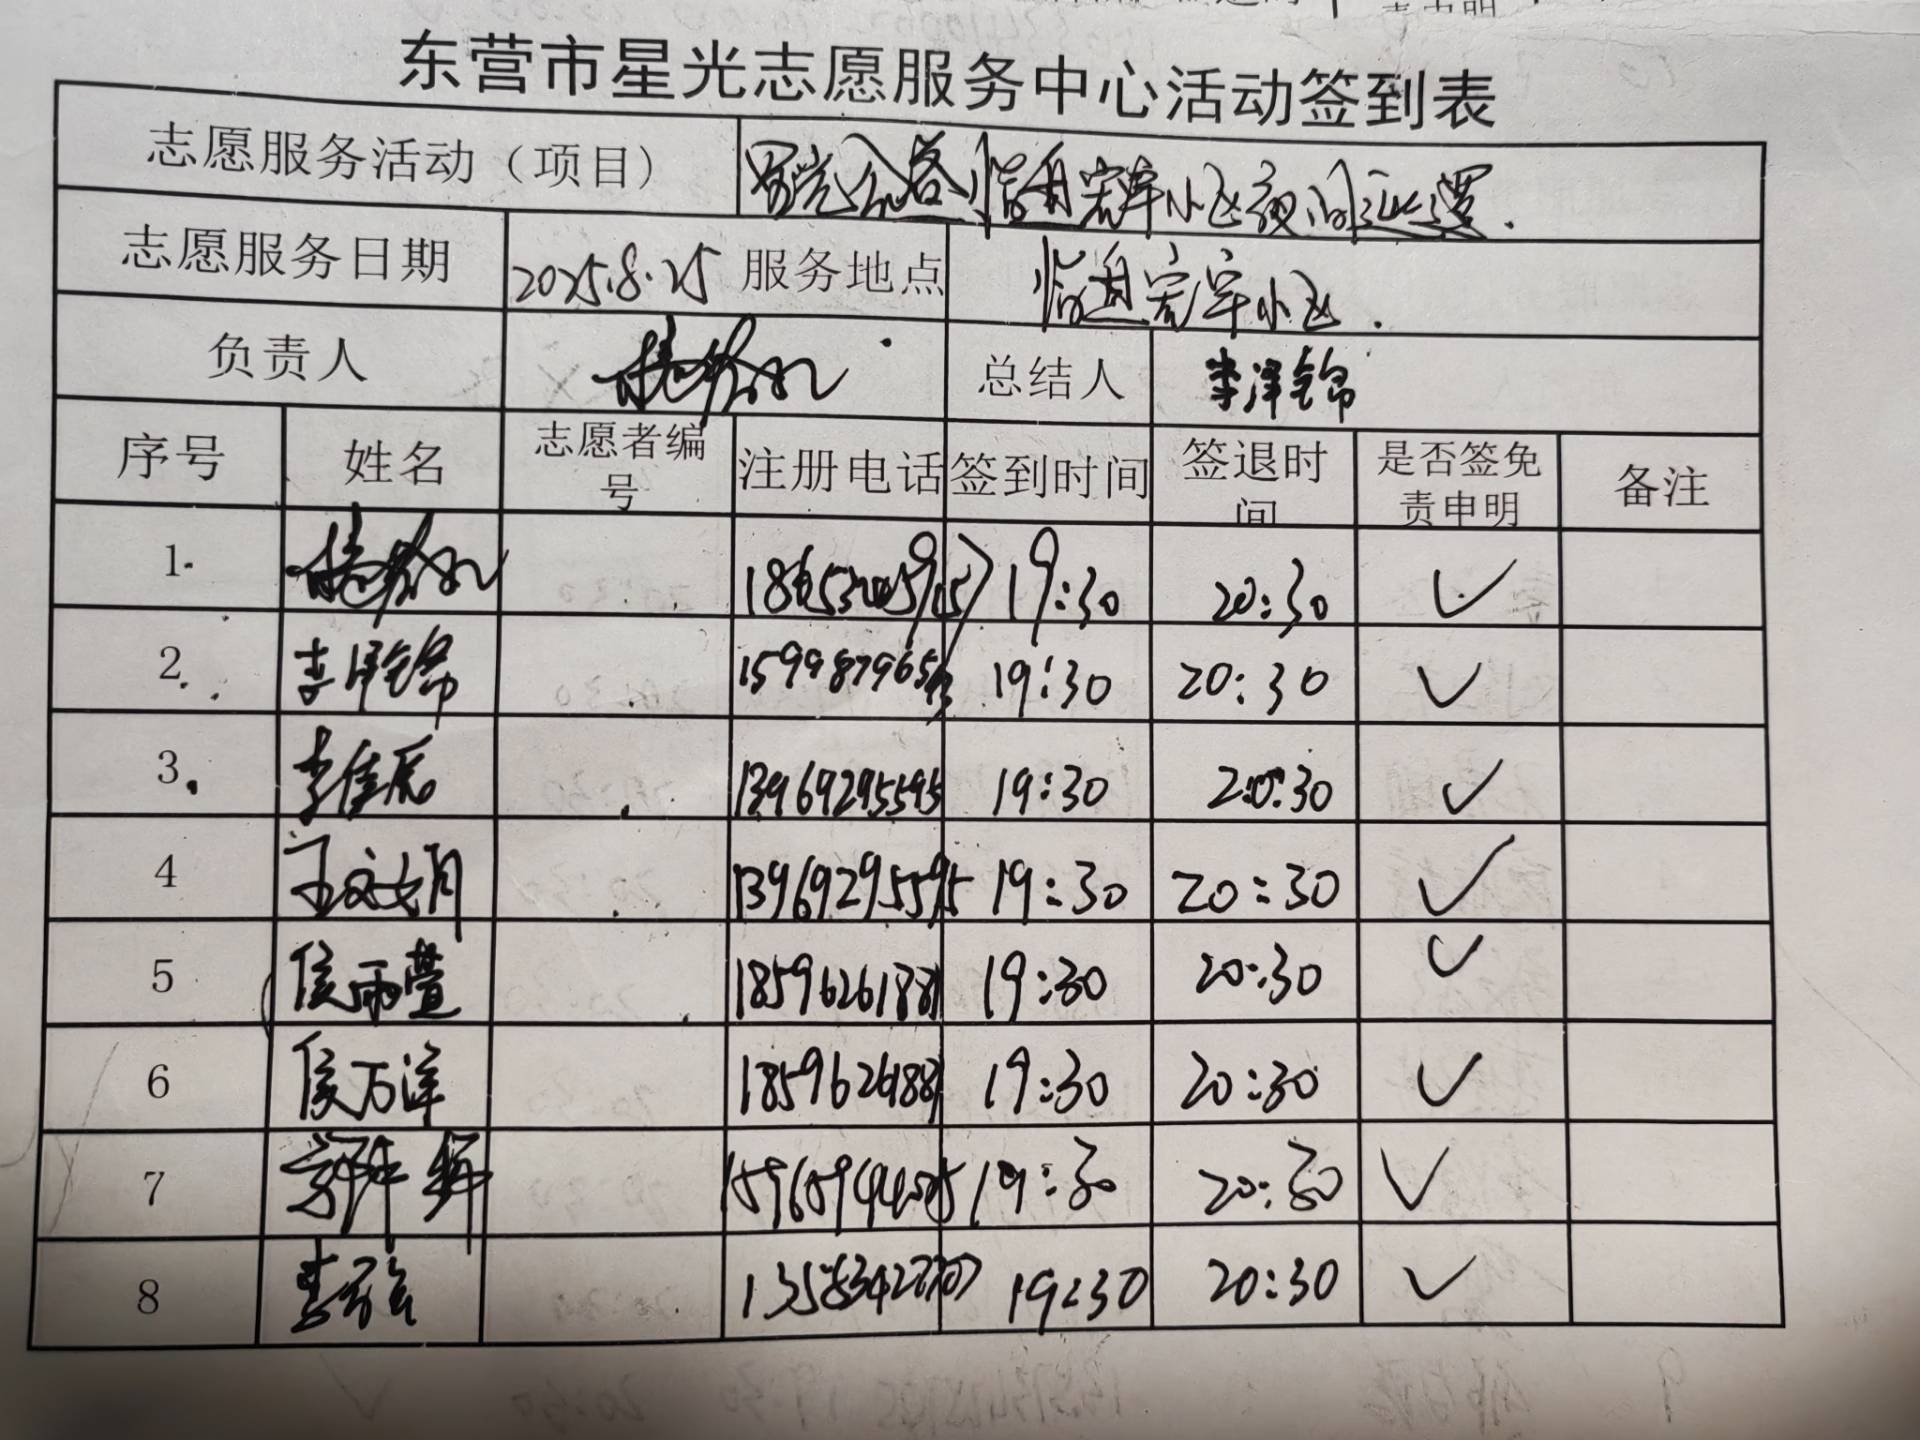 东营市星光志愿服务中心活动签到表
志愿服务活动（项目） 星光公益 临电宏军小区夜间巡逻.
志愿服务日期 2025.8.25 服务地点 宏军小区.
负责人 总结人 李泽锦
序号 姓名 志愿者编号 注册电话 签到时间 签退时间 是否签免责申明 备注
1 19:30 20:30 ✓
2 李泽锦 19:30 20:30 ✓
3 李佳辰 13969295595 19:30 20:30 ✓
4 王文娟 13969295595 19:30 20:30 ✓
5 侯雨萱 18596261881 19:30 20:30 ✓
6 侯万洋 18596261881 19:30 20:30 ✓
7 19:30 20:30 ✓
8 19:30 20:30 ✓